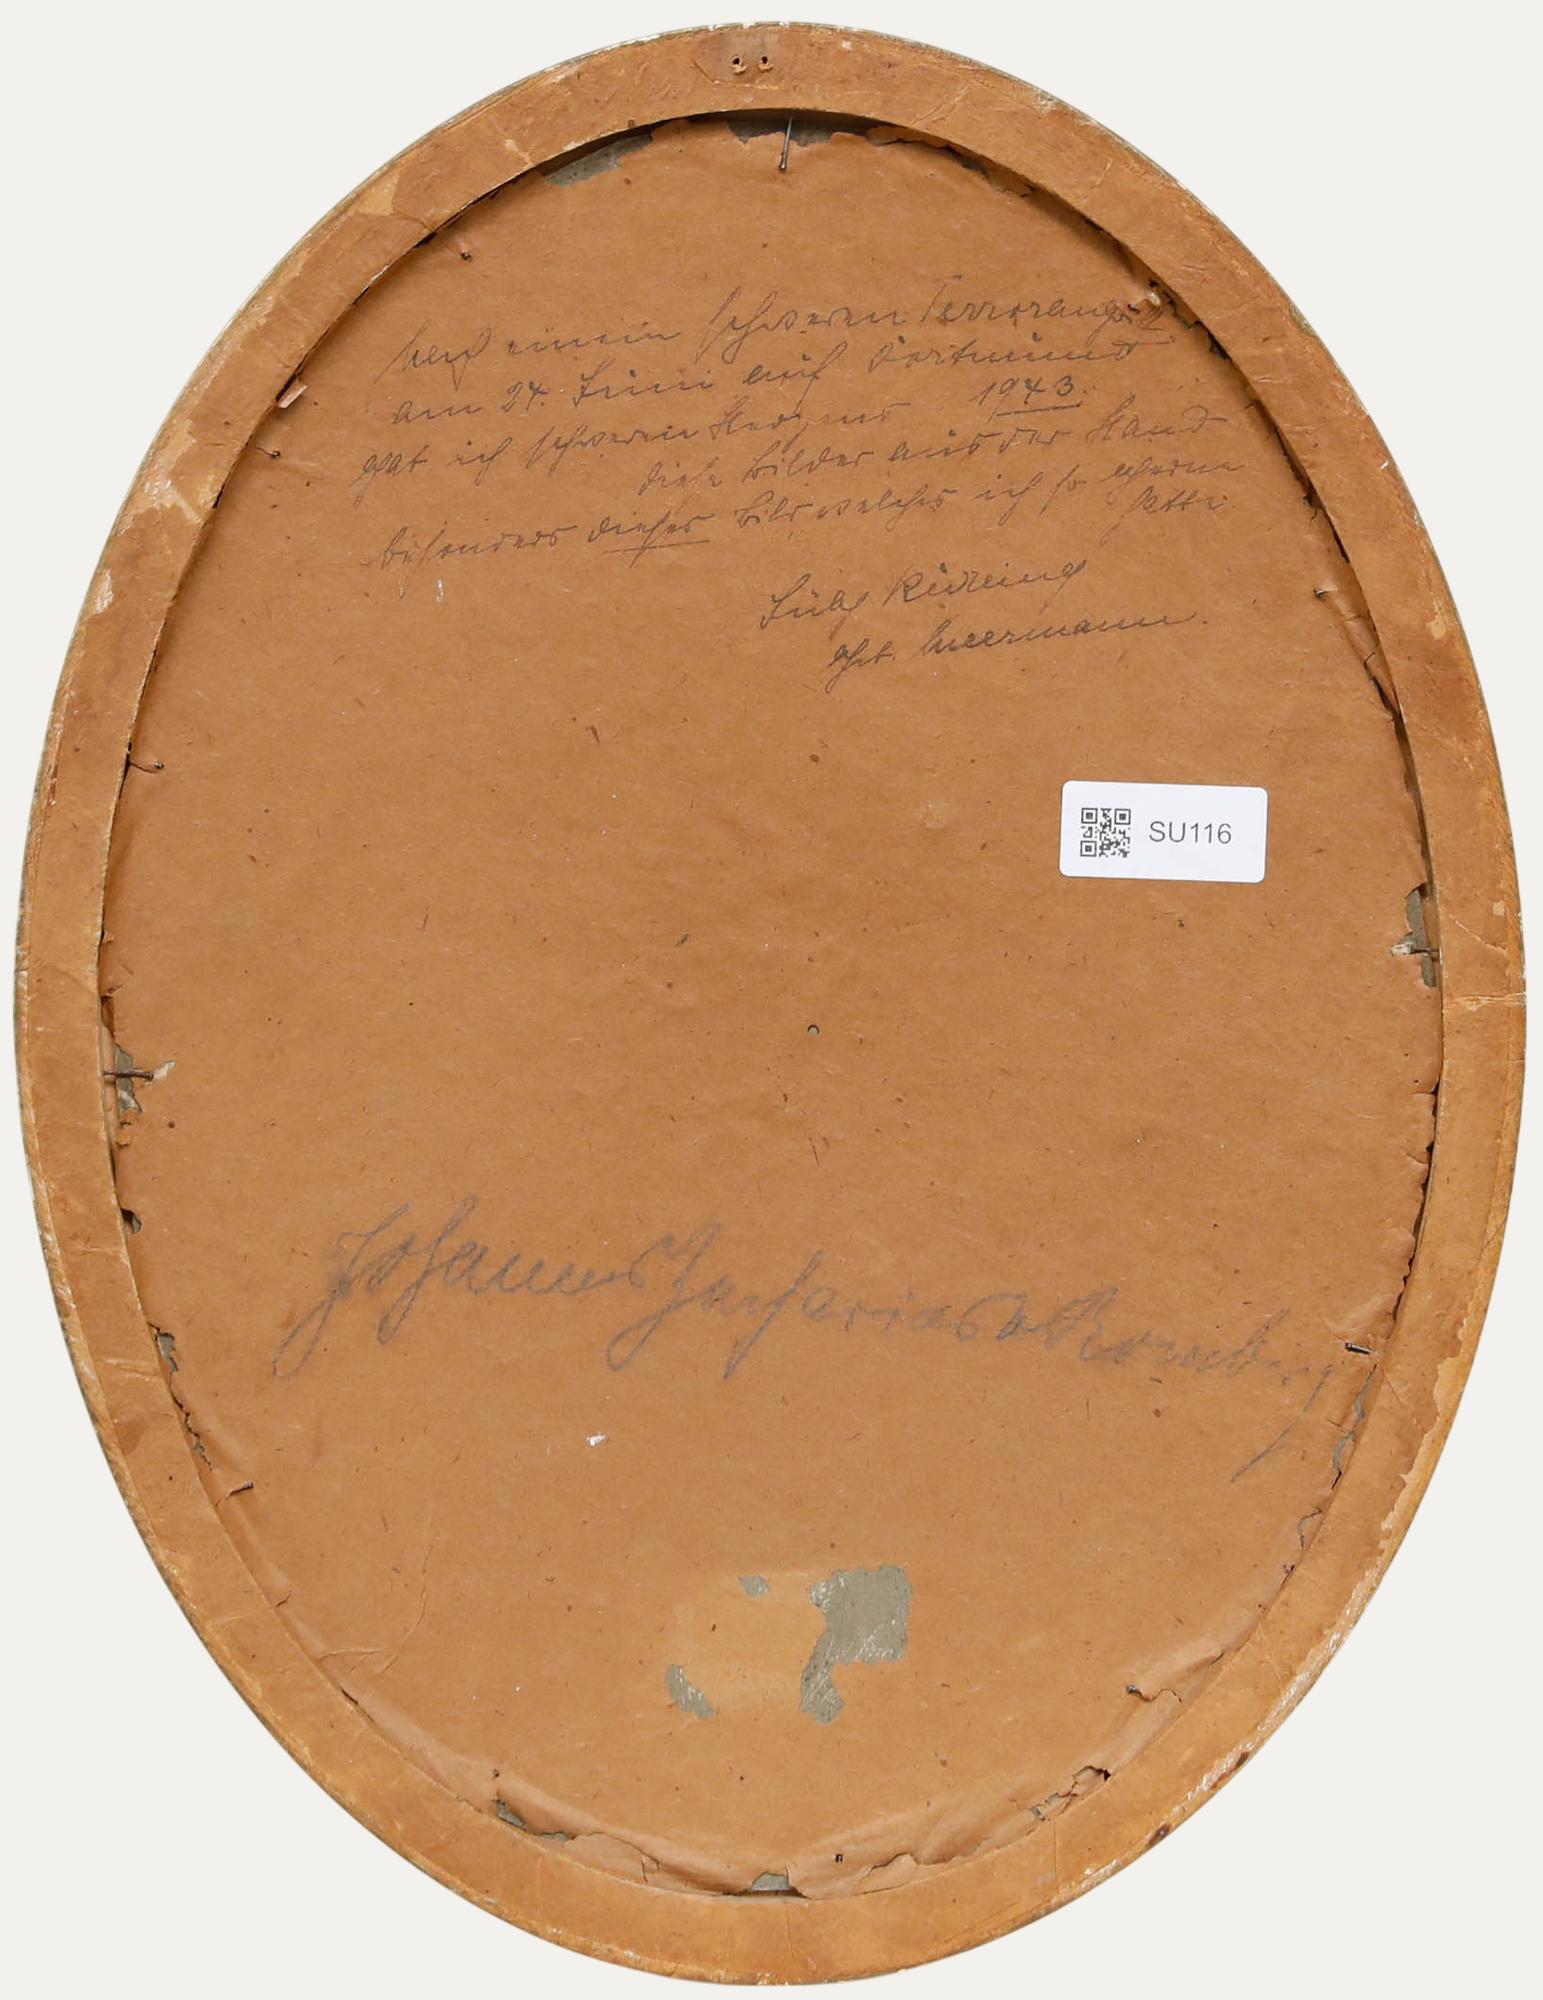 Nach einem schweren Terrorangriff
am 24. Juni auf Dortmund
1943.
gab ich schweren Herzens
diese Bilder aus der Hand
besonders dieses Bild welches ich so gerne
hatte.
geb. Meermann.
SU116
Johannes Zacharias v Romberg